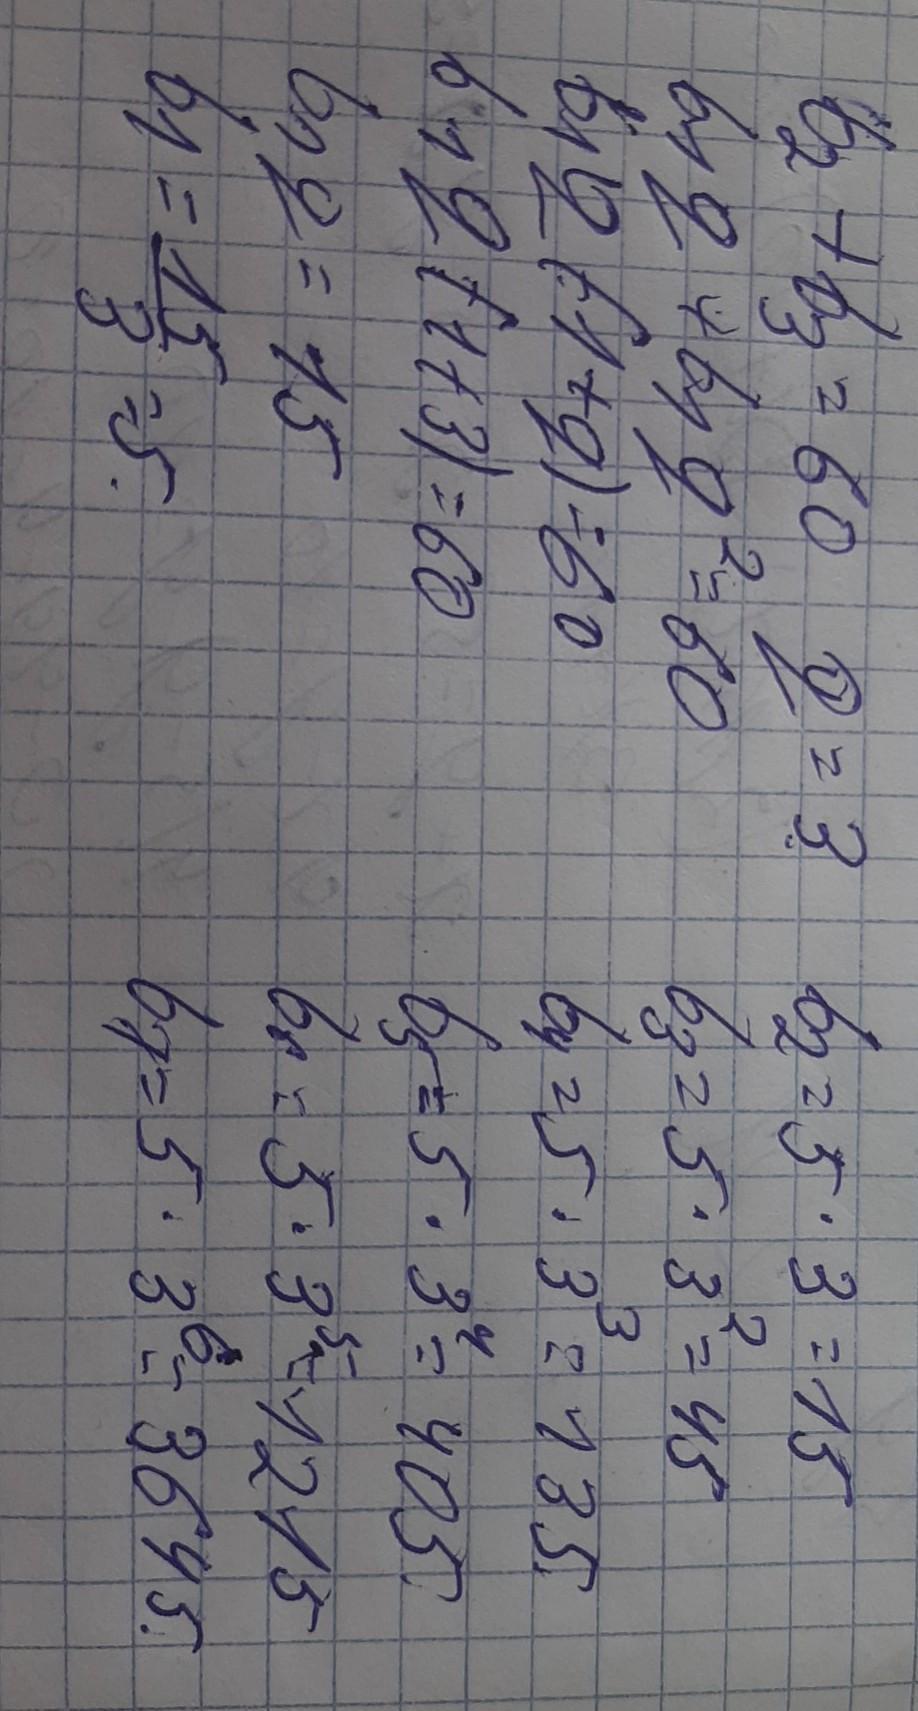 b₂ + b₃ = 60 q = 3
b₁q + b₁q² = 60
b₁q(1+q) = 60
b₁q(1+3) = 60
b₁q = 15
b₁ = 15/3 = 5.
b₂ = 5 · 3 = 15
b₃ = 5 · 3² = 45
b₄ = 5 · 3³ = 135.
b₅ = 5 · 3⁴ = 405.
b₆ = 5 · 3⁵ = 1215
b₇ = 5 · 3⁶ = 3645.